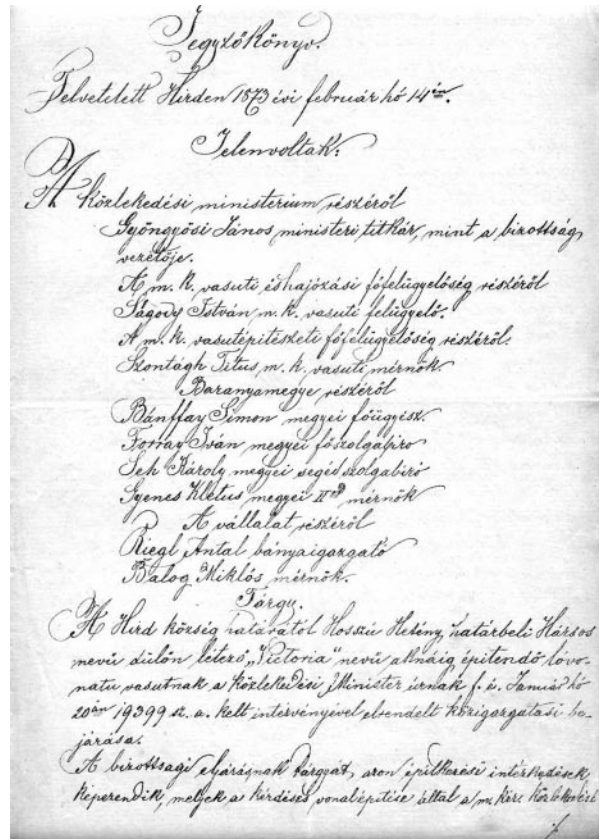 Jegyzőkönyv.
Felvetetett Hirden 1873 évi február hó 14én.
Jelenvoltak:
A közlekedési ministerium részéről
Gyöngyösi János, ministeri titkár, mint a bizottság
vezetője.
A m. k. vasuti és hajózási főfelügyelőség részéről
Ságody István m. k. vasuti felügyelő.
A m. k. vasutépitészeti főfelügyelőség részéről.
Szontágh Titus, m. k. vasuti mérnök.
Baranyamegye részéről
Bánffay Simon megyei főügyész.
Forray Iván megyei főszolgabiro
Seh Károly megyei segéd szolgabiró
Gyenes Kletus megyei IIod mérnök
A vállalat részéről
Riegl Antal bányaigazgató
Balog Miklós mérnök.
Tárgy.
A Hird község határától Hosszú Hetény határbeli Hársos
nevű dűlőn létező „Victoria” nevű aknáig épitendő lóvo-
natu vasutnak a közlekedési Minister úrnak f. é. Január hó
20án 19399 sz. a. kelt intézvényével elrendelt közigazgatási be-
járása.
A bizottsági eljárásnak tárgyát, azon épitkezési intézkedések
képezendik, melyek a kérdéses vonal épitése által a m. kir.